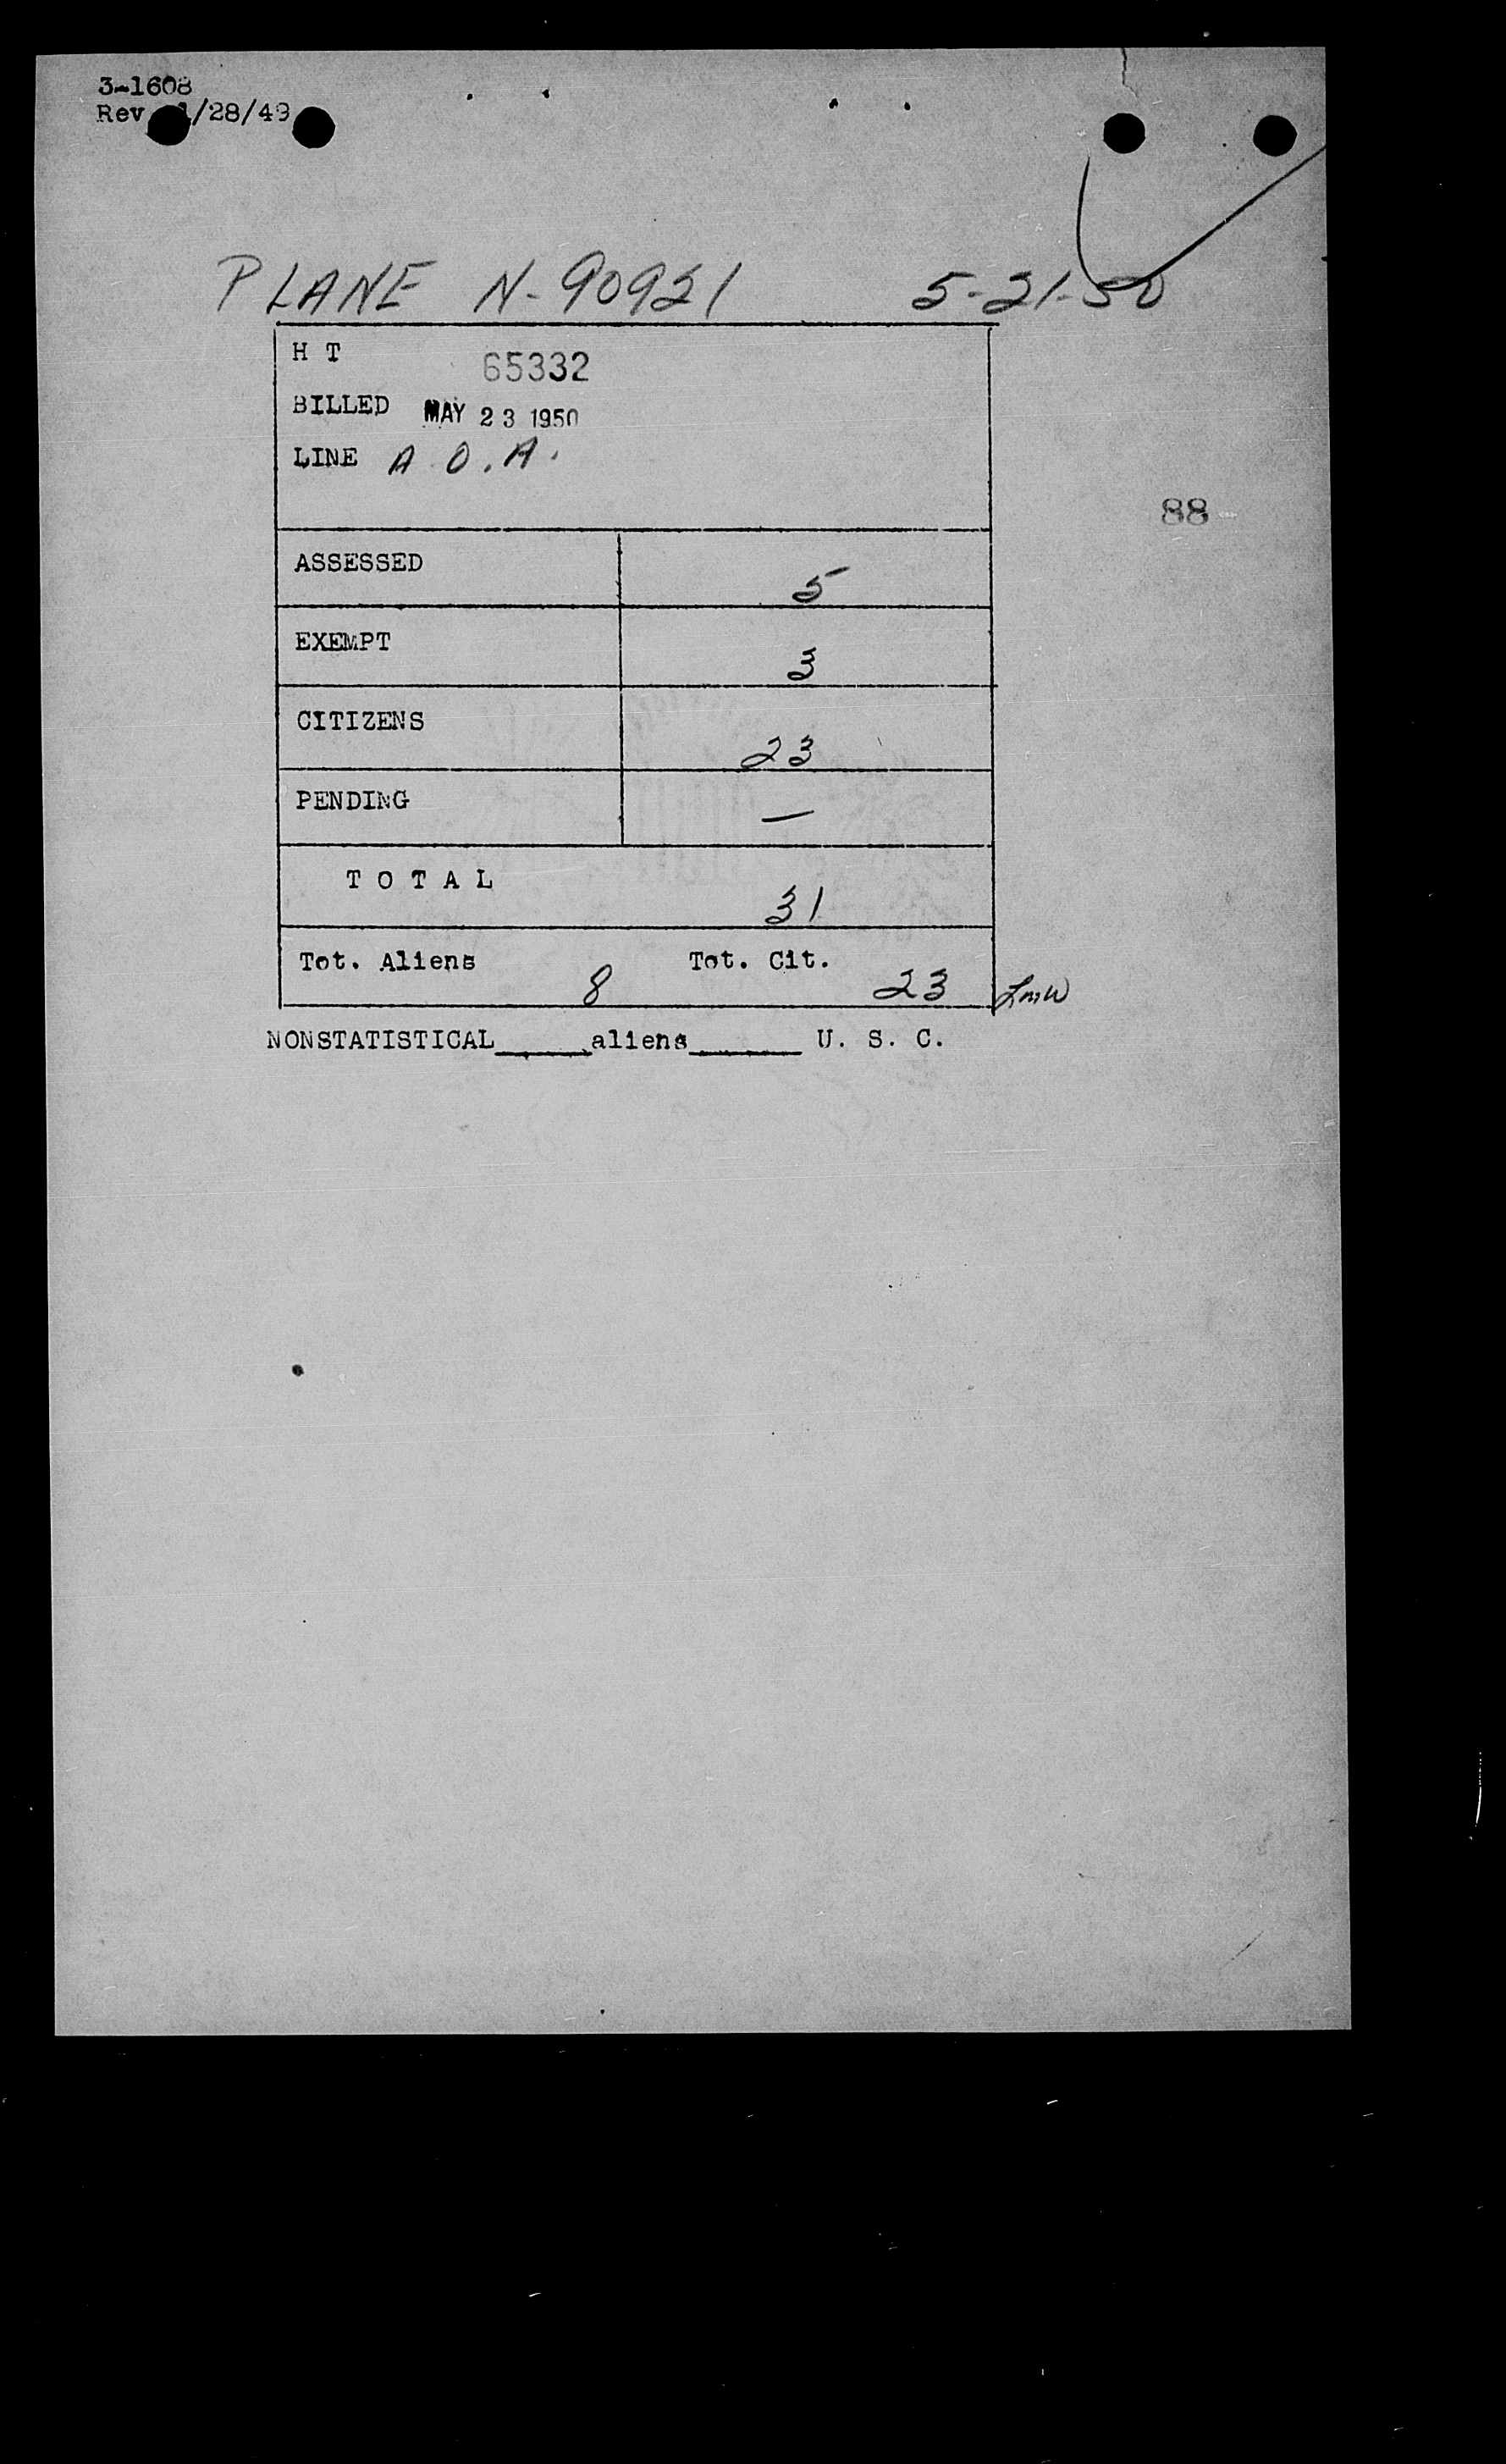 3-1608
Rev 1/28/49
PLANE N-90921 5-21-50
H T 65332
BILLED MAY 23 1950
LINE A.O.A.
88
ASSESSED 5
EXEMPT 3
CITIZENS 23
PENDING —
T O T A L 31
Tot. Aliens 8 Tot. Cit. 23 LMW
NONSTATISTICAL______aliens_______ U. S. C.